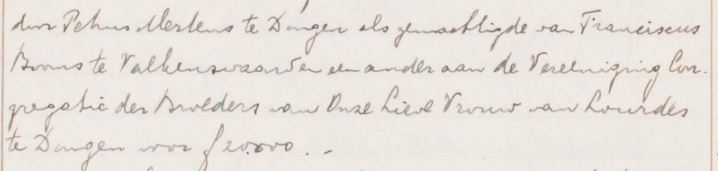 door Petrus Mertens te Dongen als gemachtigde van Franciscus
Booms te Valkenswaard en een ander aan de Vereeniging Con-
gregatie der Broeders van Onze Lieve Vrouw van Lourdes
te Dongen voor f 20.000.-